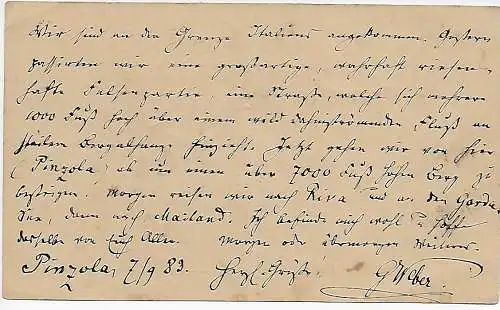 Wir sind an die Grenze Italiens angekommen. Gestern
passirten wir eine großartige, wahrhaft riesen-
hafte Felsenpartie, eine Straße, welche sich mehrere
1000 Fuß hoch über einem wild dahinströmenden Fluß an
steilen Bergabhange hinzieht. Jetzt gehen wir von hier
(Pinzola) ab um einen über 7000 Fuß hohen Berg zu
besteigen. Morgen reisen wir nach Riva und an den Garda-
See, dann nach Mailand. Ich befinde mich wohl u. hoffe
dasselbe von Euch Allen. Morgen oder übermorgen Weiteres.
Pinzola, 7/9 83. Herzl. Grüße! G Weber.